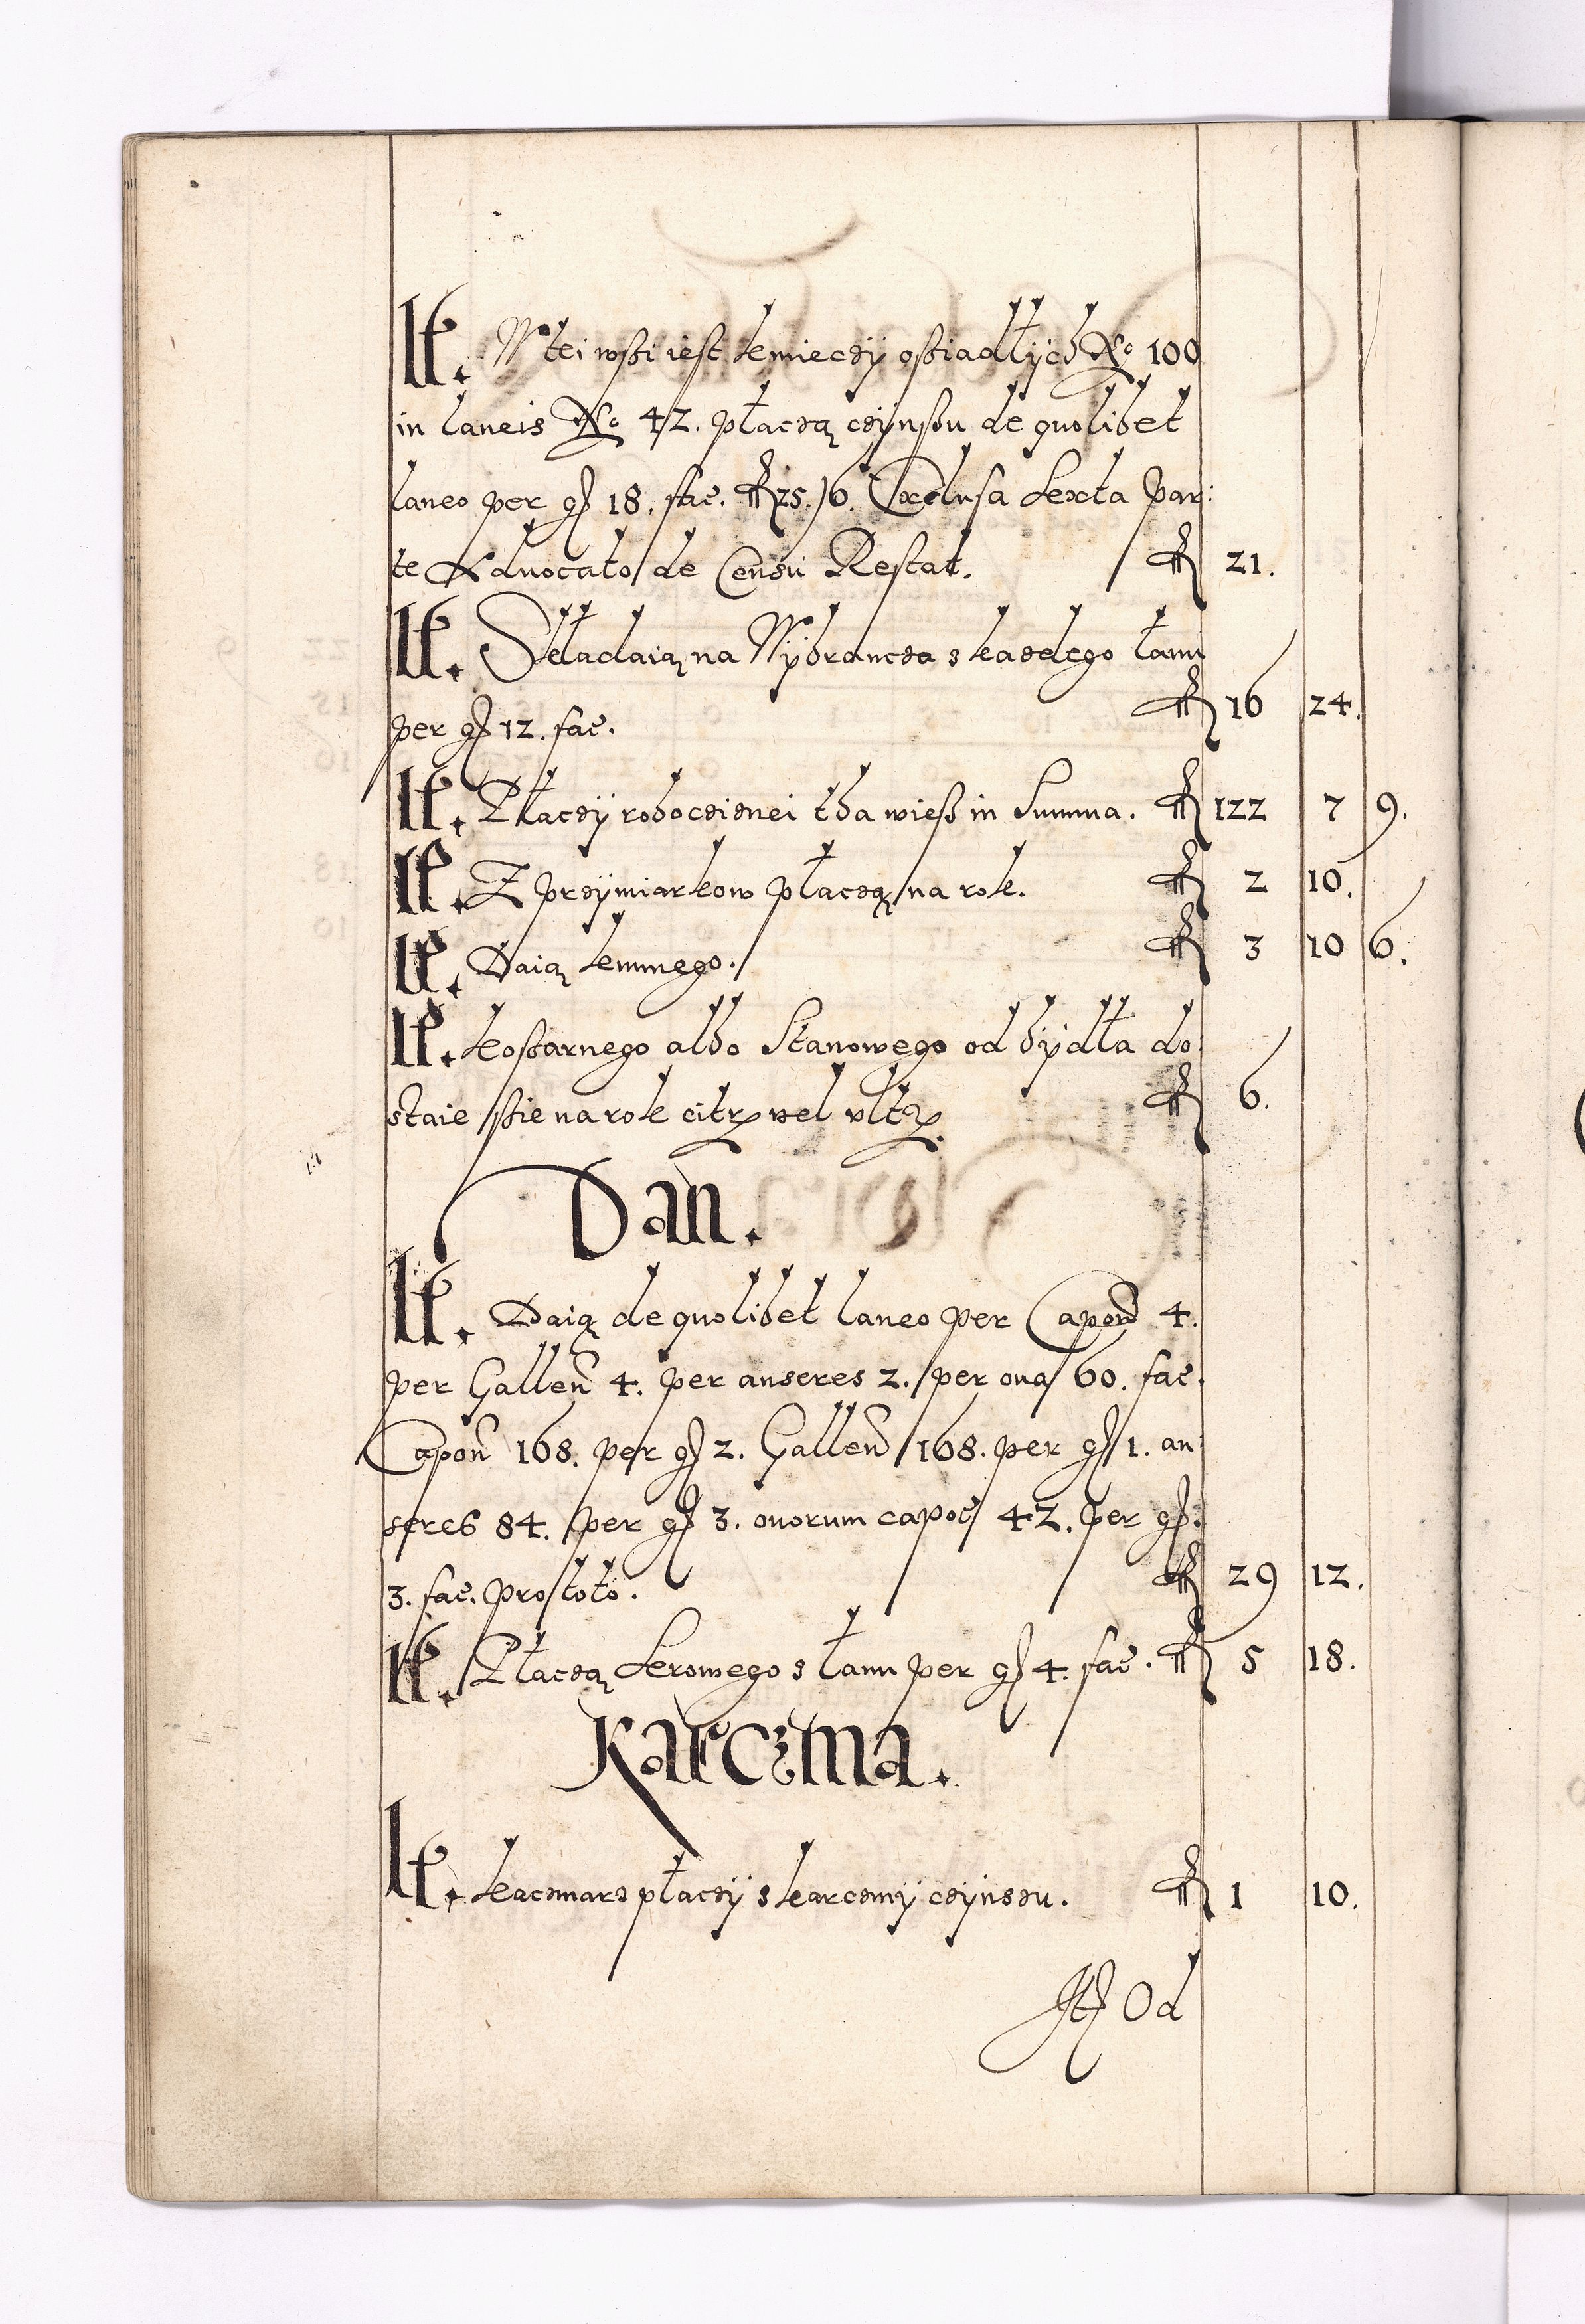 It. W tei wßi iest kmieczÿ oßiadłÿch No 100
in laneis No 42. płaczą czÿnßu de quolibet
laneo per g 18. fac. f 25/6. Exclusa sexta par:
te Advocato de Censu Restat. f 21.
It. Składaią na Wÿbrancza z kazdego łanu
per g 12. fac. f 16 24.
It. Płaczÿ robocziznei tha wieß in Summa. f 122 7 9.
It. Z przÿmiarkow płaczą na rok. f 2 10.
It. Daią Lennego. f 3 10 6.
It. koßarnego albo Stanowego od bÿdła do
staie ßie na rok citra vel ultra f 6.
Dan.
It. Daią de quolibet laneo per Capon 4.
per Gallen 4. per anseres 2. per oua 60. fac.
Capon 168. per g 2. Gallen 168. per g 1. an:
seres 84. per g 3. ouorum capoe 42. per g:
3. fac. pro toto. f 29 12.
It. Płaczą Serowego z łanu per g 4. fac. f 5 18.
Karczma.
It. kaczmarz płaczÿ z karczmÿ czÿnszu. f 1 10.
It Od